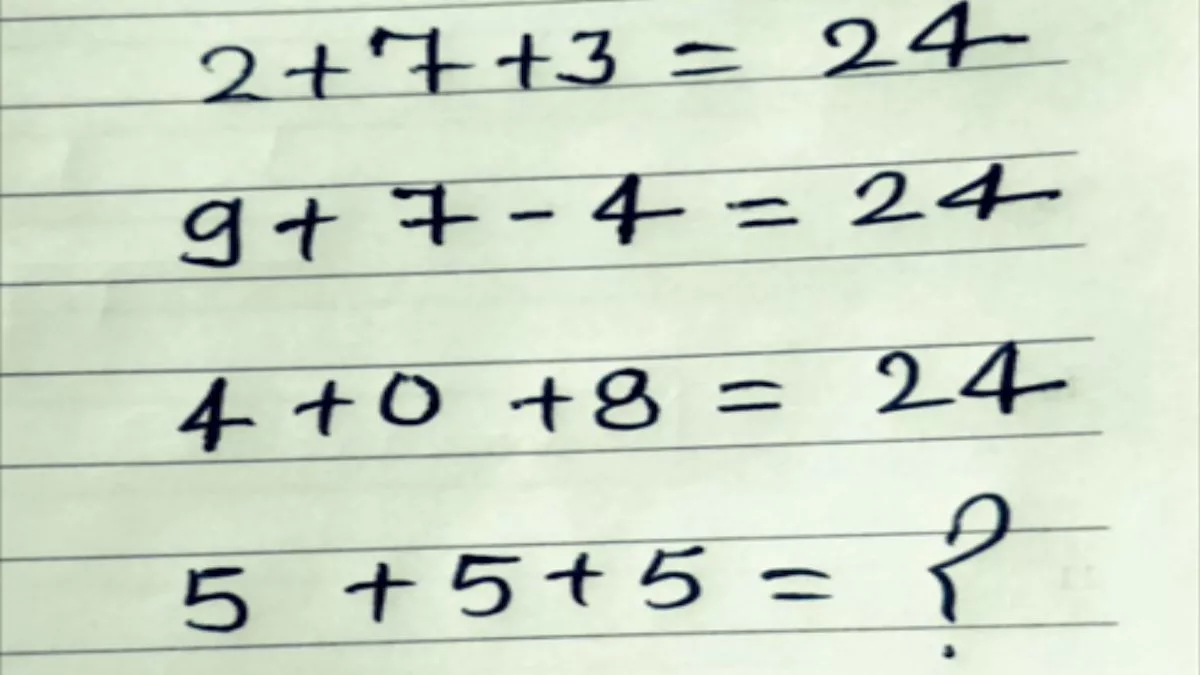 2+7+3 = 24
9+7-4 = 24
4+0+8 = 24
5+5+5 = ?